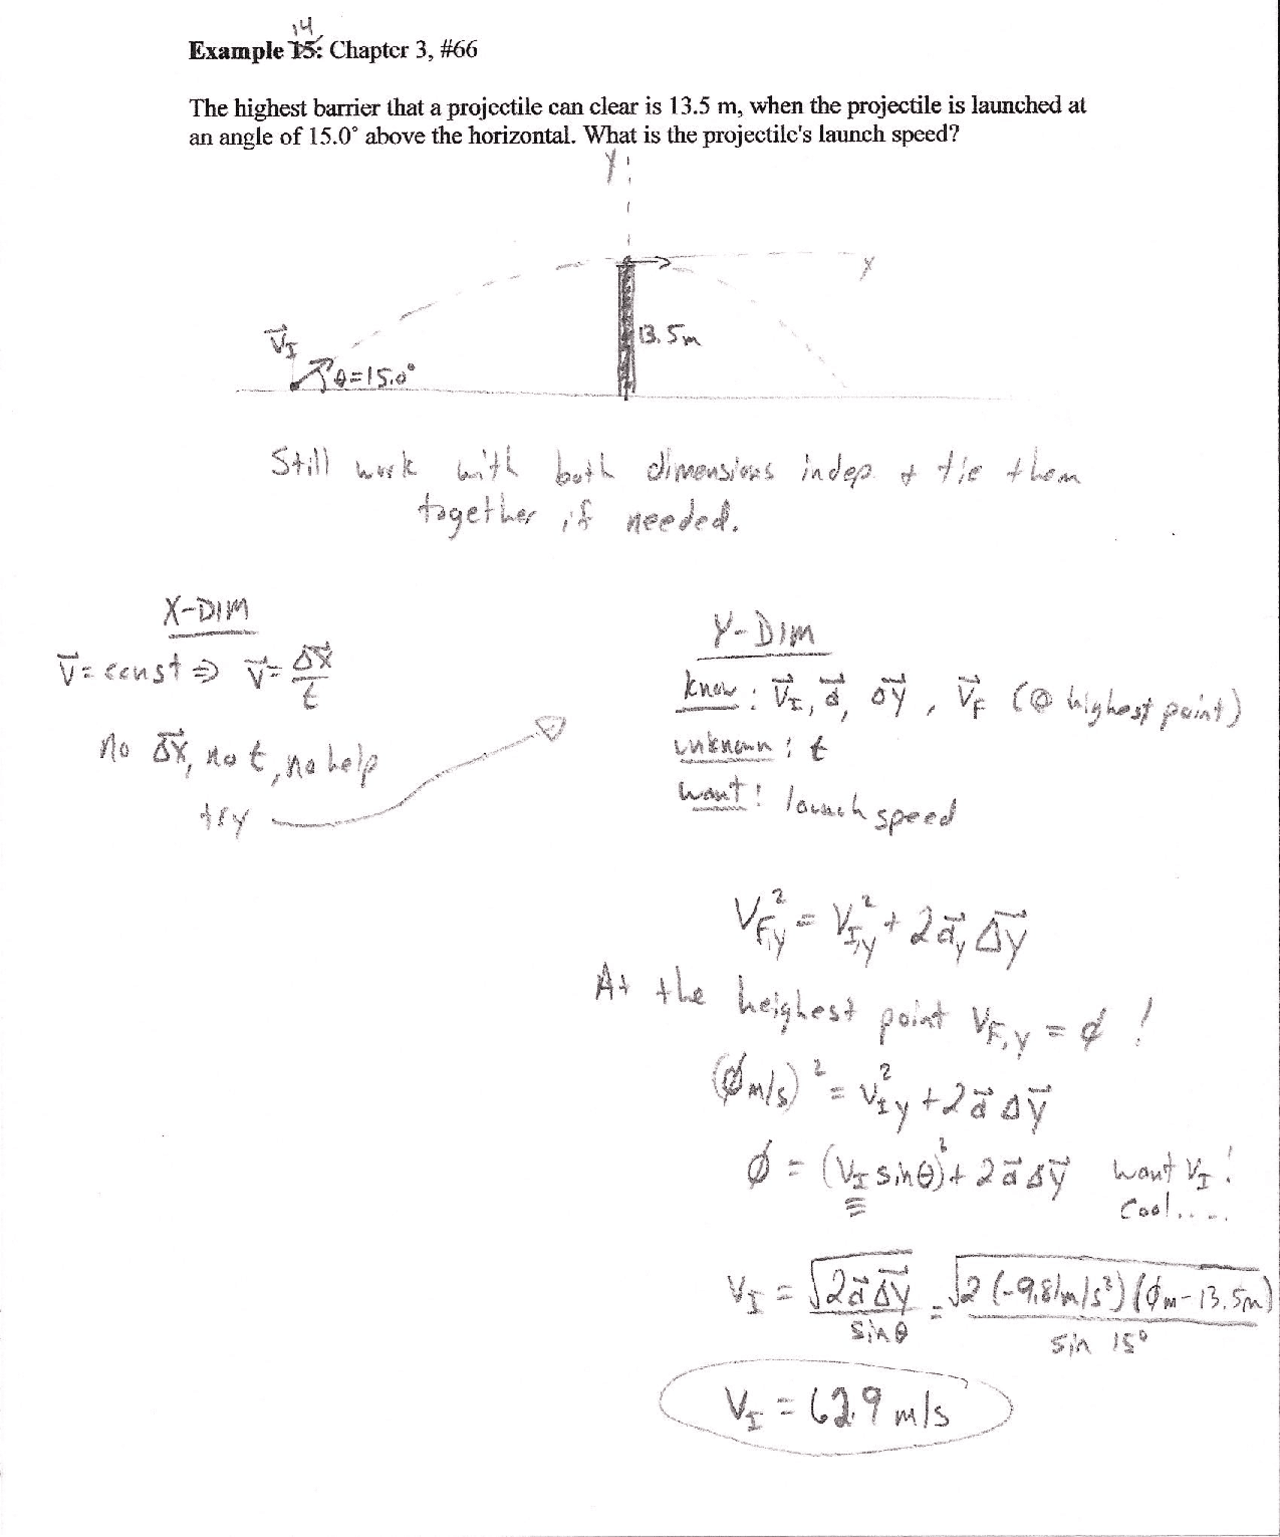 14
Example 15: Chapter 3, #66
The highest barrier that a projectile can clear is 13.5 m, when the projectile is launched at
an angle of 15.0° above the horizontal. What is the projectile's launch speed?
Y
X
13.5m
V⃗_I
θ=15.0°
Still work with both dimensions indep. & tie them
together if needed.
X-DIM
V⃗ = const ⇒ V⃗ = Δx⃗/t
no Δx⃗, no t, no help
try
Y-DIM
know: V⃗_I, a⃗, Δy⃗, V⃗_F (@ highest point)
unknown: t
want: launch speed
V_F,y² = V_I,y² + 2a⃗_y Δy⃗
At the heighest point V_F,y = ∅ !
(∅ m/s)² = V_Iy² + 2a⃗ Δy⃗
∅ = (V_I sinθ)² + 2a⃗ Δy⃗ want V_I!
Cool.....
V_I = √(2a⃗ Δy⃗)/sinθ = √(2(-9.81m/s²)(∅m-13.5m))/sin 15°
V_I = 62.9 m/s